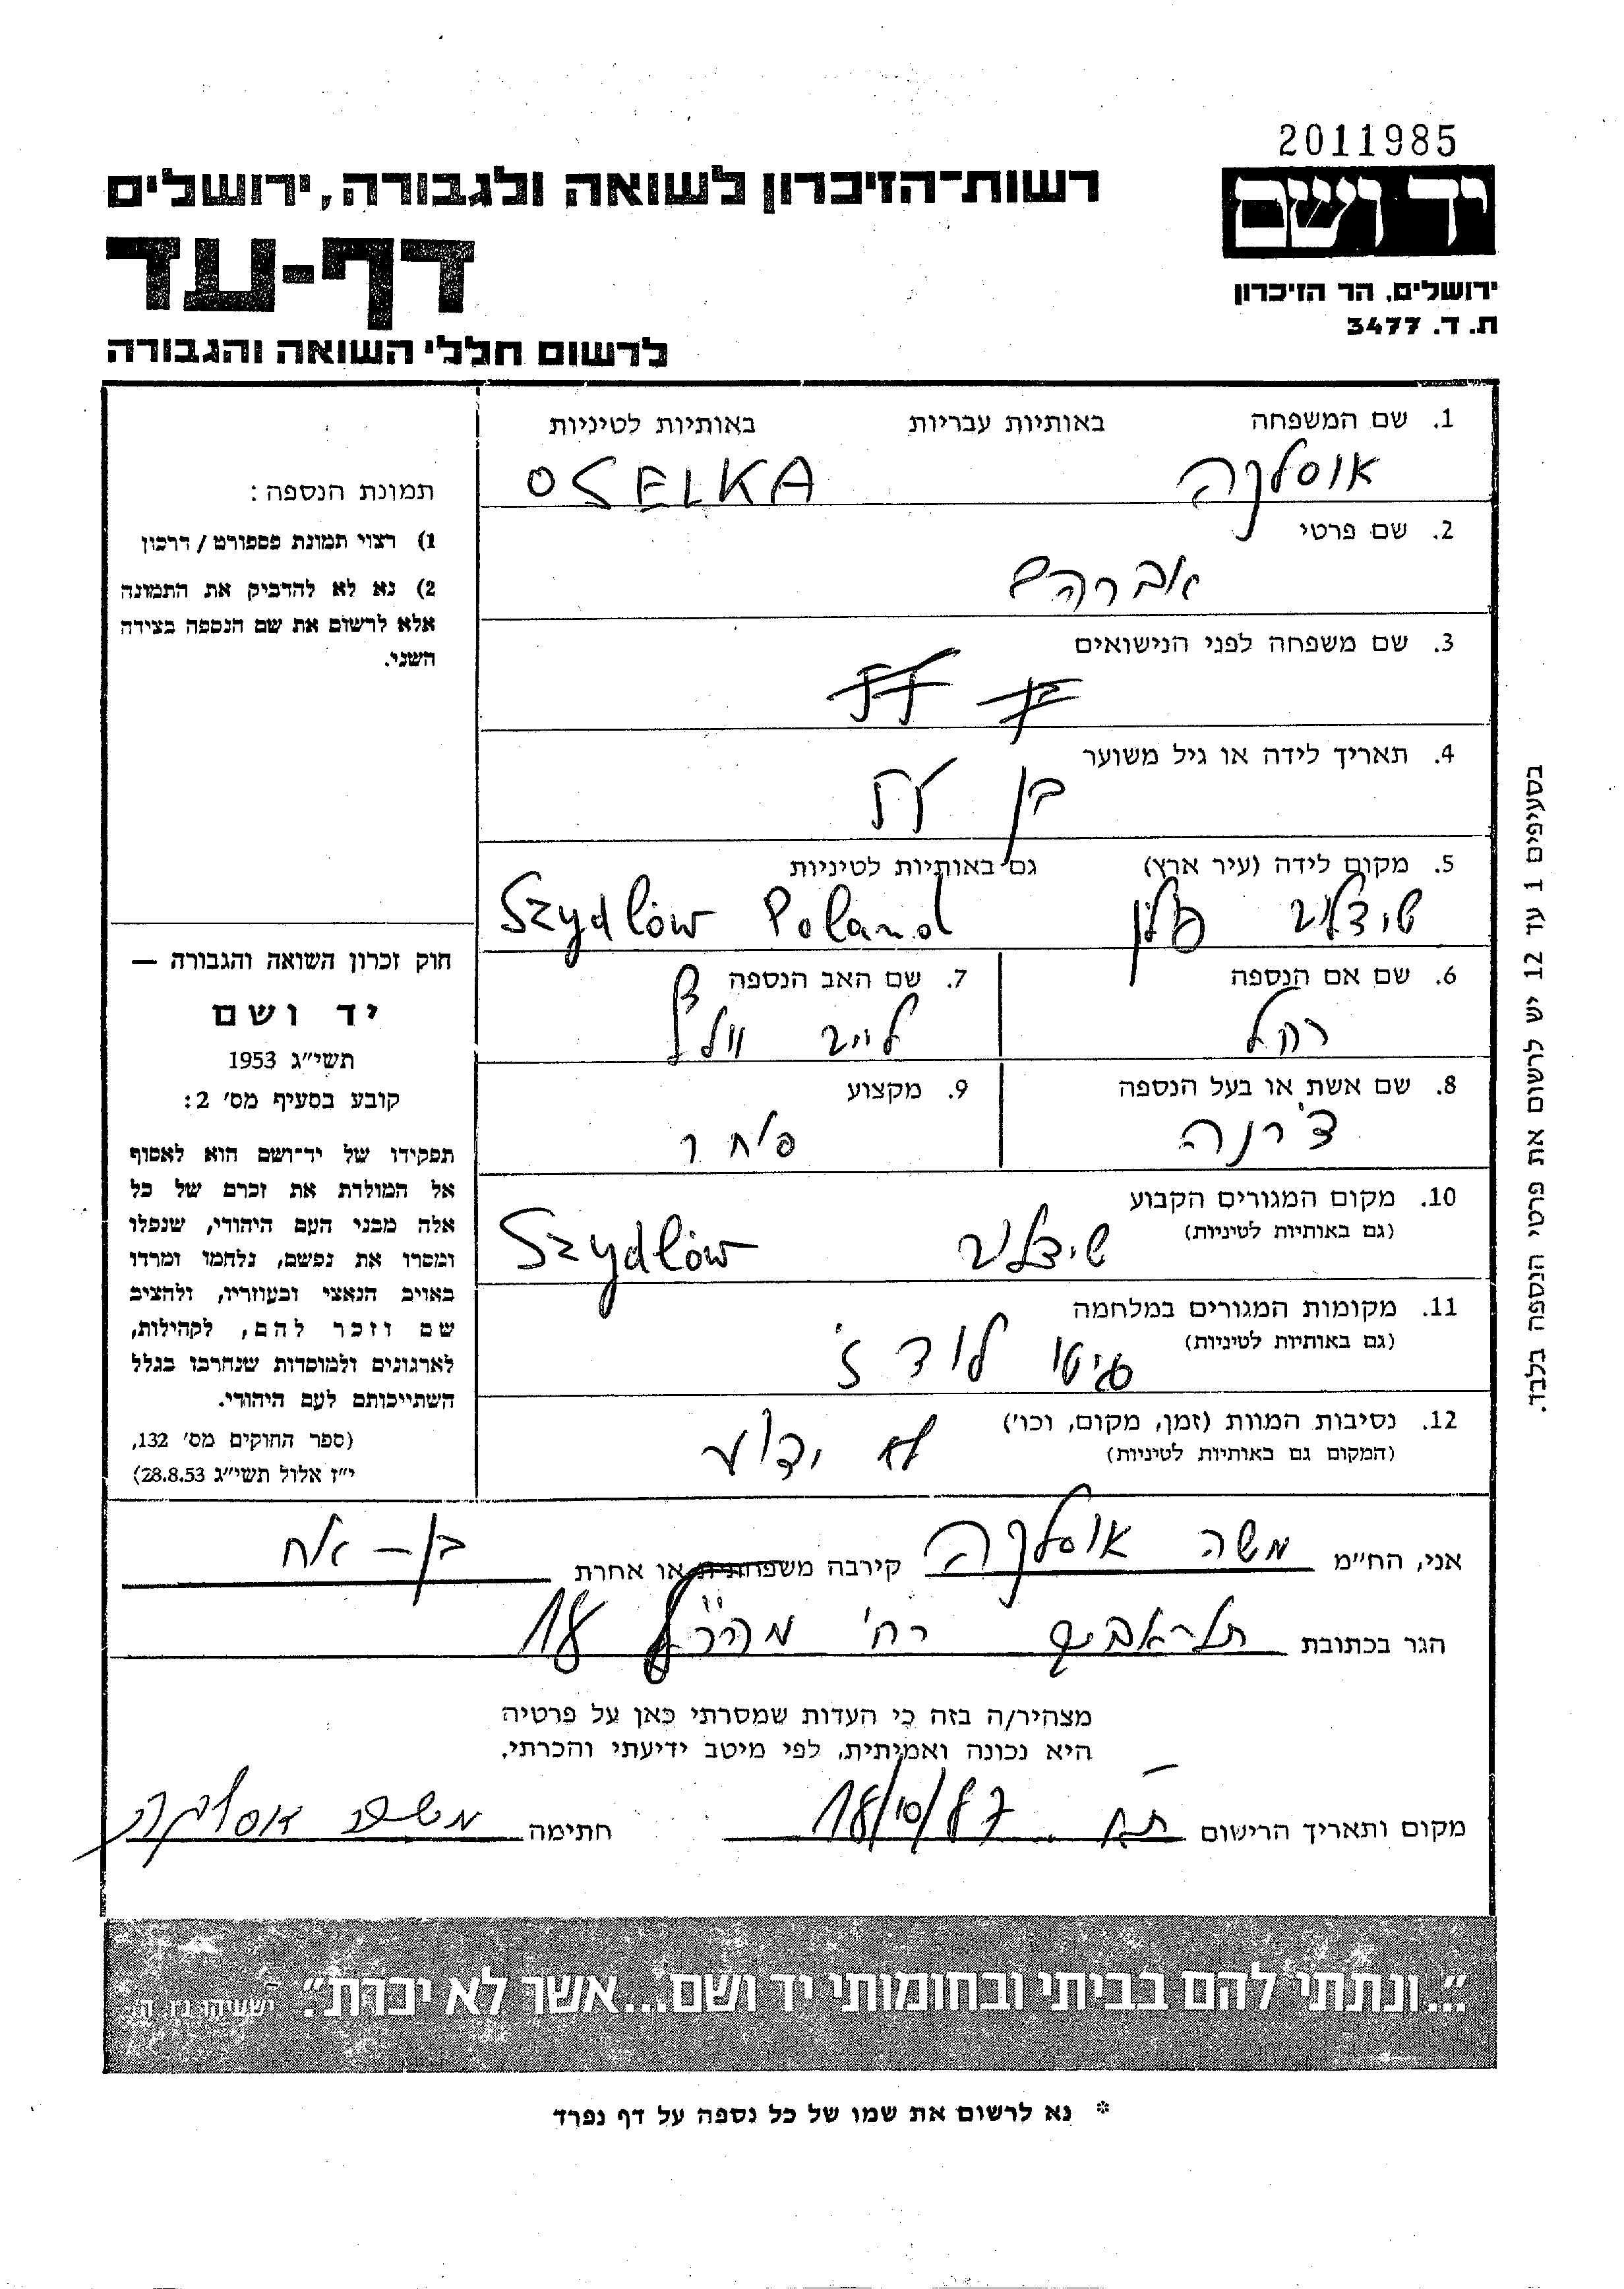 2011985
יד ושם
רשות־הזיכרון לשואה ולגבורה, ירושלים
דף-עד
ירושלים, הר הזיכרון
ת. ד. 3477
לרשום חללי השואה והגבורה
1. שם המשפחה באותיות עבריות באותיות לטיניות
אוסלקה OSELKA
2. שם פרטי
אברהם
3. שם משפחה לפני הנישואים
4. תאריך לידה או גיל משוער
בן
5. מקום לידה (עיר ארץ) גם באותיות לטיניות
שידלוב פולין Szydlów Poland
6. שם אם הנספה
רחל
7. שם האב הנספה
לייב
8. שם אשת או בעל הנספה
צ'רנה
9. מקצוע
סוחר
10. מקום המגורים הקבוע
(גם באותיות לטיניות)
שידלוב Szydlów
11. מקומות המגורים במלחמה
(גם באותיות לטיניות)
גיטו לודז'
12. נסיבות המוות (זמן, מקום, וכו')
(המקום גם באותיות לטיניות)
לא ידוע
תמונת הנספה:
1) רצוי תמונת פספורט / דרכון
2) נא לא להדביק את התמונה
אלא לרשום את שם הנספה בצידה
השני.
חוק זכרון השואה והגבורה —
יד ושם
תשי"ג 1953
קובע בסעיף מס' 2:
תפקידו של יד־ושם הוא לאסוף
אל המולדת את זכרם של כל
אלה מבני העם היהודי, שנפלו
ומסרו את נפשם, נלחמו ומרדו
באויב הנאצי ובעוזריו, ולהציב
שם וזכר להם, לקהילות,
לארגונים ולמוסדות שנחרבו בגלל
השתייכותם לעם היהודי.
(ספר החוקים מס' 132,
י"ז אלול תשי"ג 28.8.53)
בסעיפים 1 עד 12 יש לרשום את פרטי הנספה בלבד.
אני, הח"מ משה אוסלקה קירבה משפחתית או אחרת בן-אח
הגר בכתובת תל-אביב רח' מהר"ל 18
מצהיר/ה בזה כי העדות שמסרתי כאן על פרטיה
היא נכונה ואמיתית, לפי מיטב ידיעתי והכרתי.
מקום ותאריך הרישום ת"א 18/10/87 חתימה משה אוסלקה
"...ונתתי להם בביתי ובחומותי יד ושם...אשר לא יכרת". ישעיהו נ"ו, ה'
* נא לרשום את שמו של כל נספה על דף נפרד